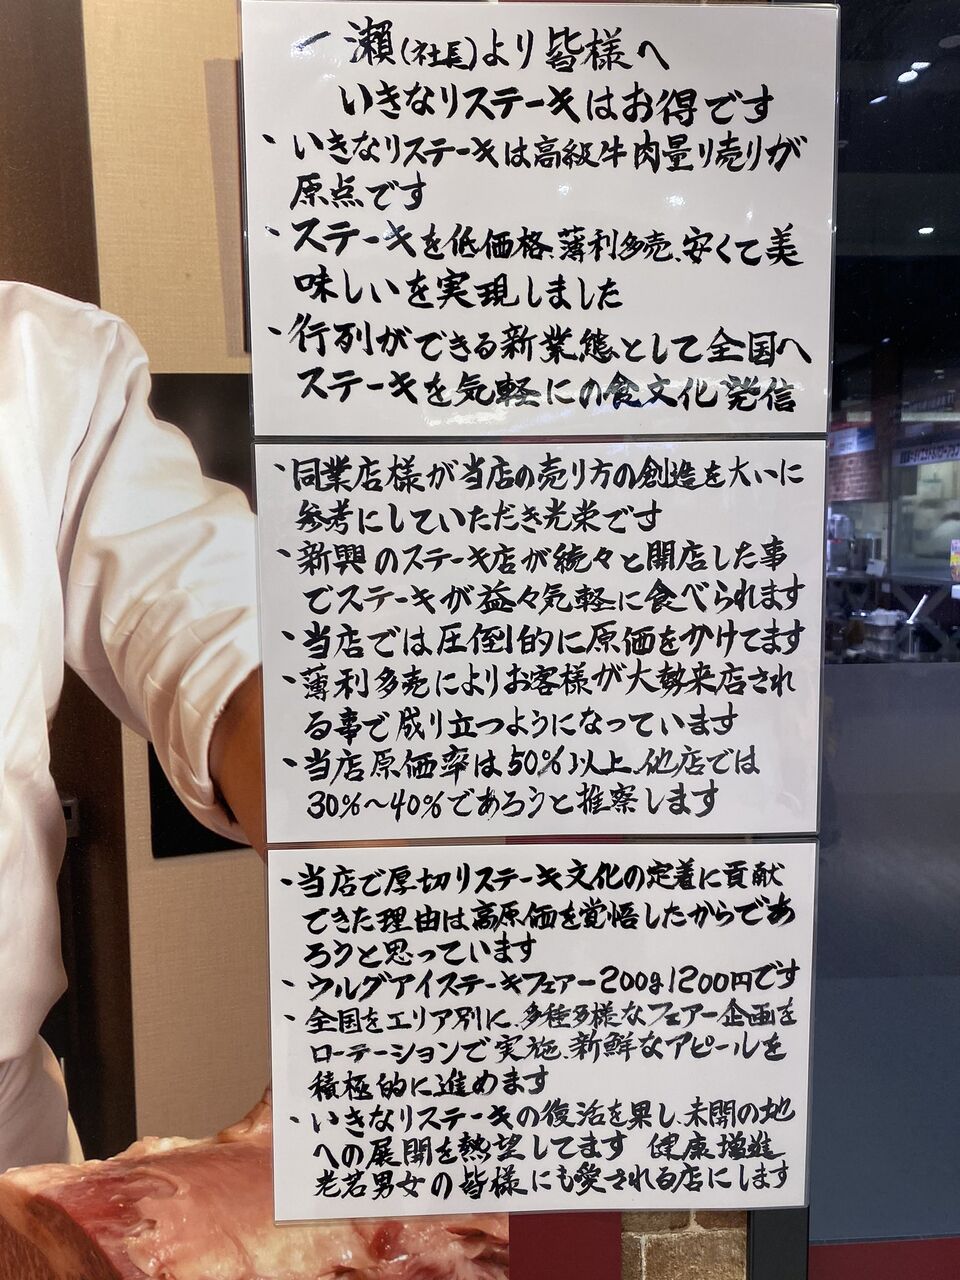 一瀬(社長)より皆様へ
いきなりステーキはお得です
・いきなりステーキは高級牛肉量り売りが
原点です
・ステーキを低価格、薄利多売、安くて美
味しいを実現しました
・行列ができる新業態として全国へ
ステーキを気軽にの食文化発信
・同業店様が当店の売り方の創造を大いに
参考にしていただき光栄です
・新興のステーキ店が続々と開店した事
でステーキが益々気軽に食べられます
・当店では圧倒的に原価をかけてます
・薄利多売によりお客様が大勢来店され
る事で成り立つようになっています
・当店原価率は50%以上、他店では
30%～40%であろうと推察します
・当店で厚切りステーキ文化の定着に貢献
できた理由は高原価を覚悟したからであ
ろうと思っています
・ウルグアイステーキフェアー200g1200円です
・全国をエリア別に、多種多様なフェアー企画を
ローテーションで実施、新鮮なアピールを
積極的に進めます
・いきなりステーキの復活を果し、未開の地
への展開を熱望してます 健康増進
老若男女の皆様にも愛される店にします